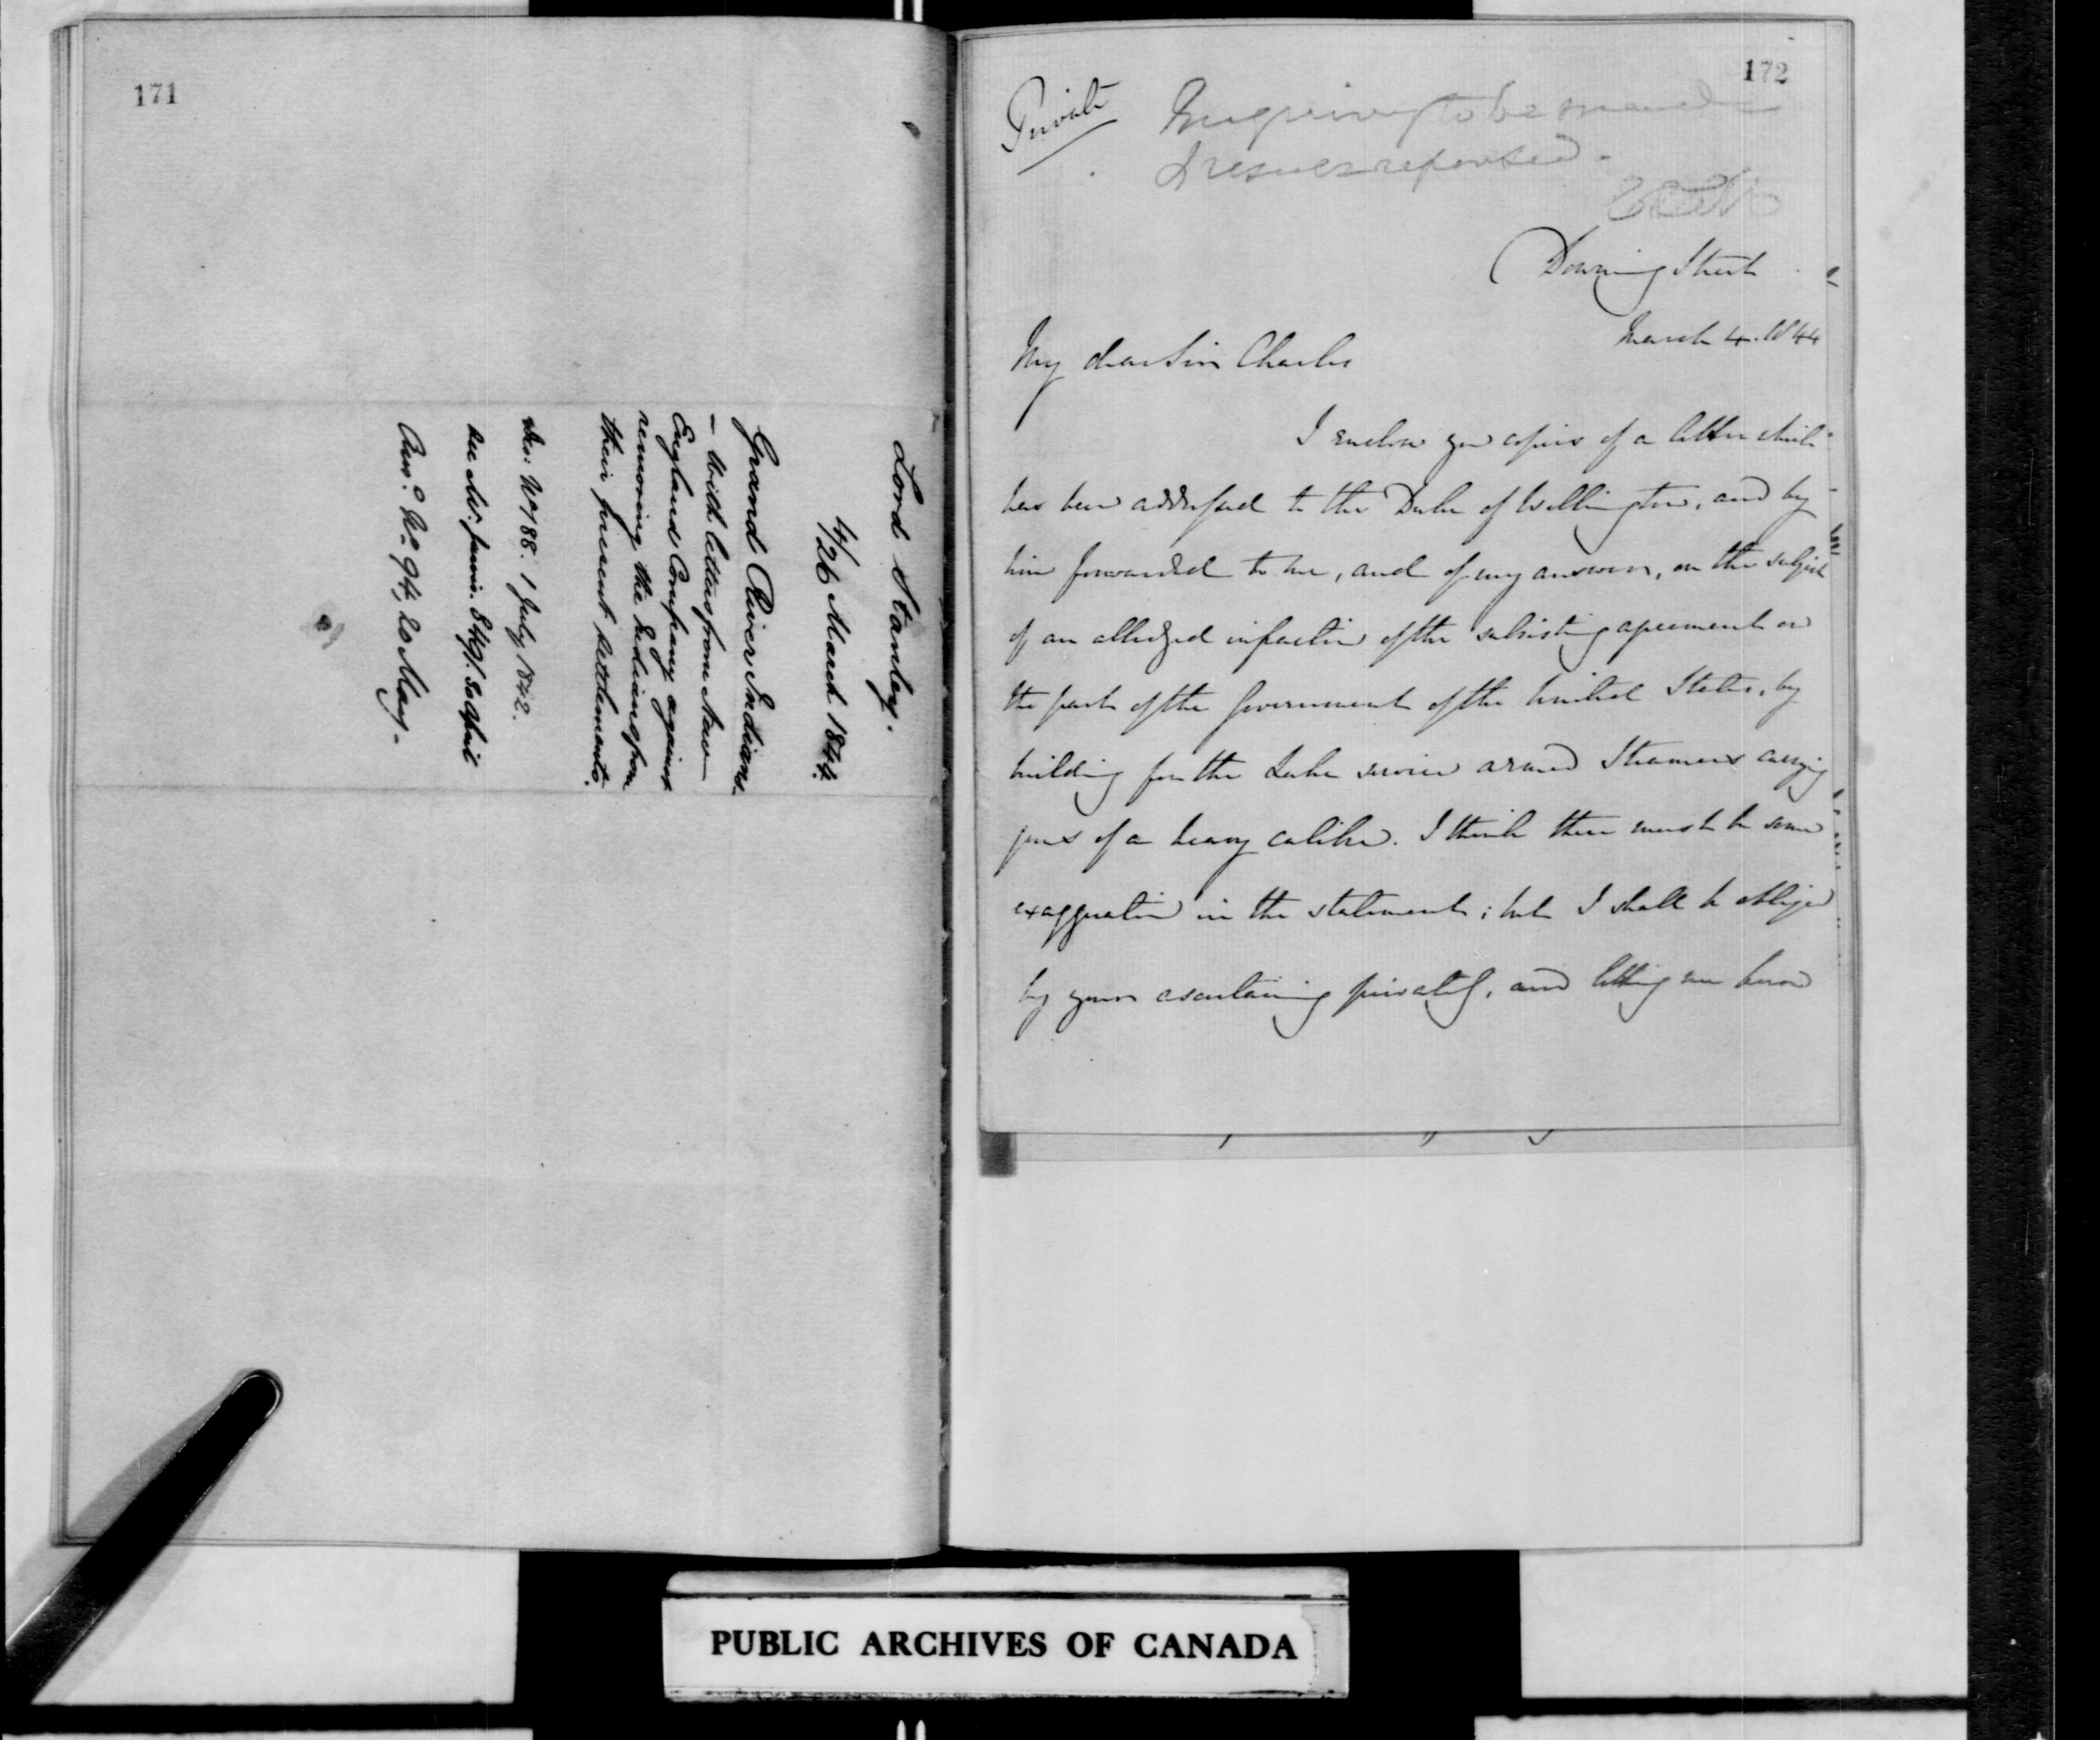 171
Lord Stanley.
4/26 March 1844.
Grand River Indians.
– With letters from New
England Company against
removing the Indians from
their present settlements.
Des: No 88. 1 July 1842.
See Mr. Jarvis. 849/. 30 April
Ansd. No. 94, 20 May.
172
Private
Inquiries to be made
& result reported.
Downing Street
March 4. 1844
My dear Sir Charles
I enclose you copies of a letter which
has been addressed to the Duke of Wellington, and by
him forwarded to me, and of my answer, on the subject
of an alledged infraction of the subsisting agreement on
the part of the Government of the United States, by
building for the Lake service armed Steamers carrying
guns of a heavy calibre. I think there must be some
exaggeration in the statement; but I shall be obliged
by your ascertaining privately, and letting me know
PUBLIC ARCHIVES OF CANADA